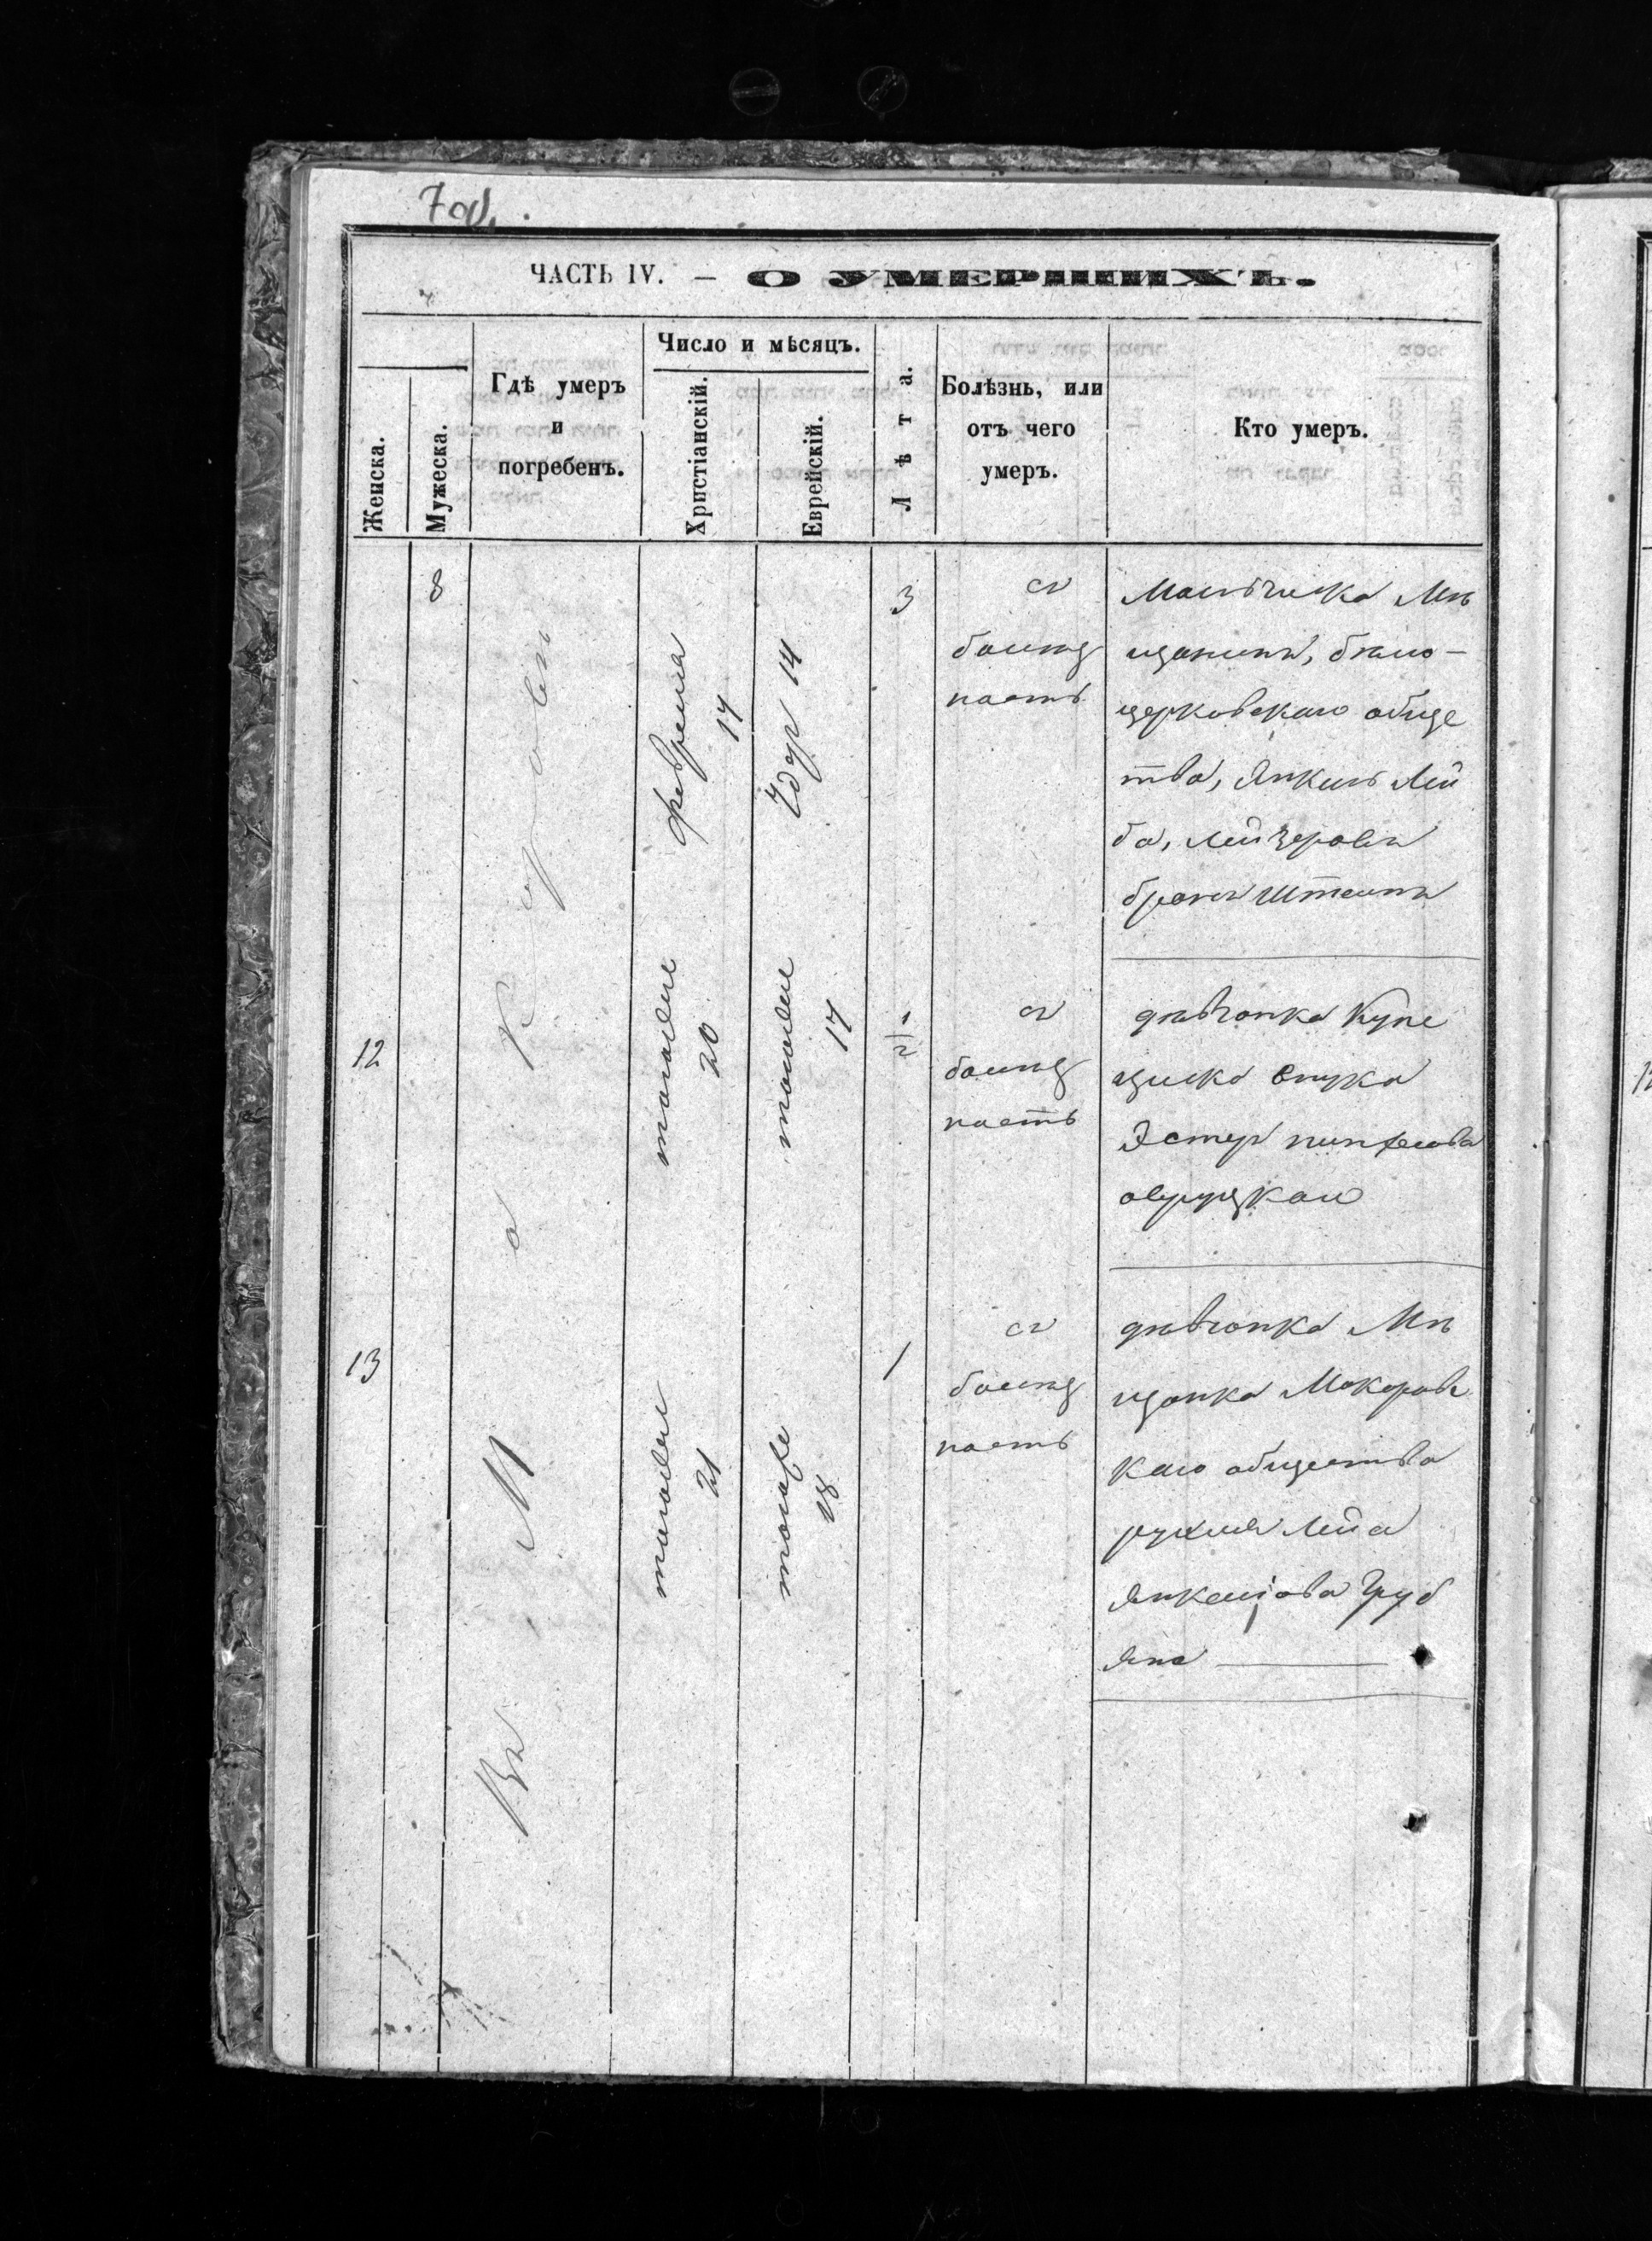 7 об.
ЧАСТЬ IV. — О УМЕРШИХЪ.
Женска.
Мужеска.
Гдѣ умеръ
и
погребенъ.
Число и мѣсяцъ.
Христіанскій.
Еврейскій.
Лѣта.
Болѣзнь, или
отъ чего
умеръ.
Кто умеръ.
Въ М. Макаровъ
8
февраля
17
Адар 14
3
съ
болезд
ность
мальчика Мѣ
щанинъ, бѣло-
церковскаго обще
тва, Янкиль Лей
ба, Лейзеровъ
бронштеинъ
12
тогоже
20
тогоже
17
1/2
съ
болезд
ность
дѣвчонка Купе
ческа внука
Эстер пинхесова
овруцкаю
13
тогоже
21
тогоже
18
1
съ
болезд
ность
дѣвчонка Мѣ
щанка Макоровс
каго общества
рухля Лея
Янкелiова Груб
яна